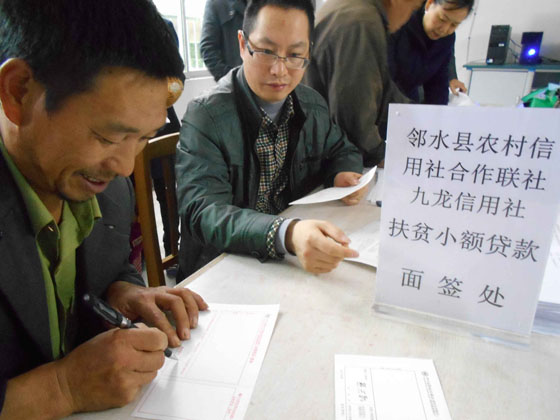 邻水县农村信
用社合作联社
九龙信用社
扶贫小额贷款
面签处